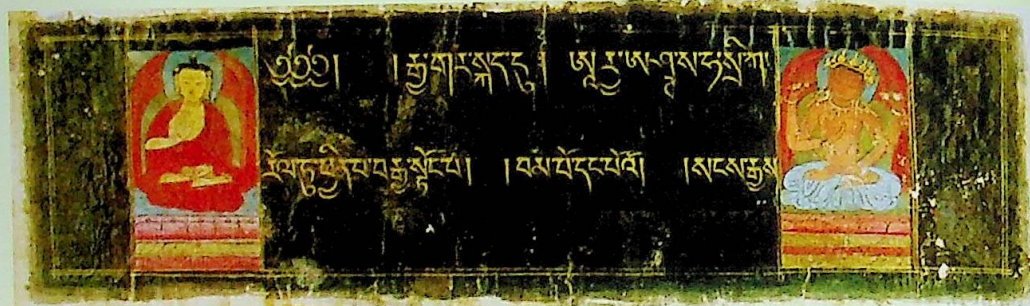 ༄༅༅། །རྒྱ་གར་སྐད་དུ། ཨཱརྱ་ཨཥྚ་ས་ཧ་སྲི་ཀ་
རོལ་ཏུ་ཕྱིན་པ་བརྒྱ་སྟོང་པ། །བམ་པོ་དང་པོའོ། །སངས་རྒྱས་